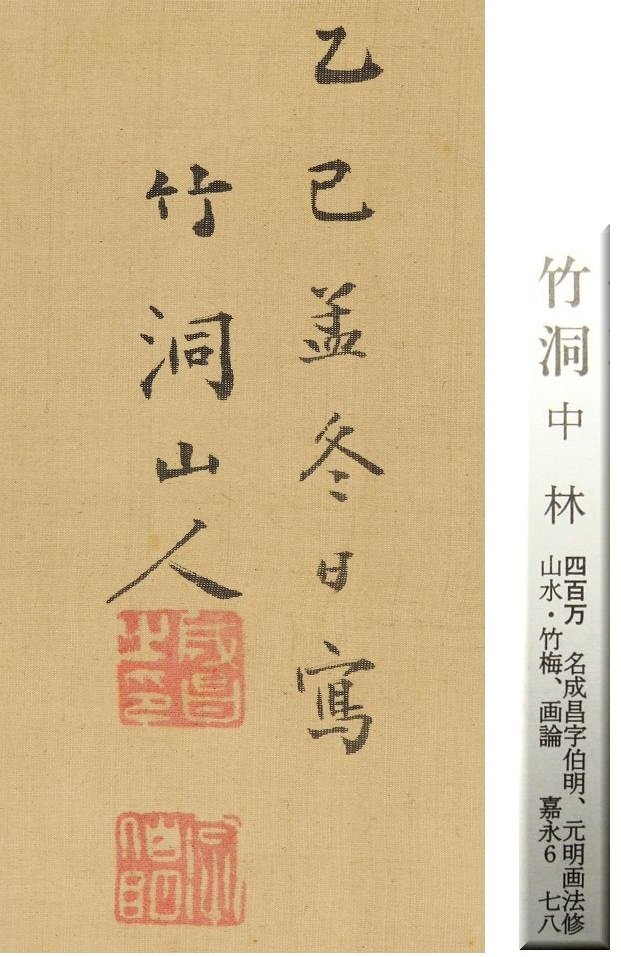 乙巳孟冬日寫
竹洞山人
成昌
之印
竹洞 中林
四百万 名成昌字伯明、元明画法修
山水・竹梅、画論 嘉永6 七八